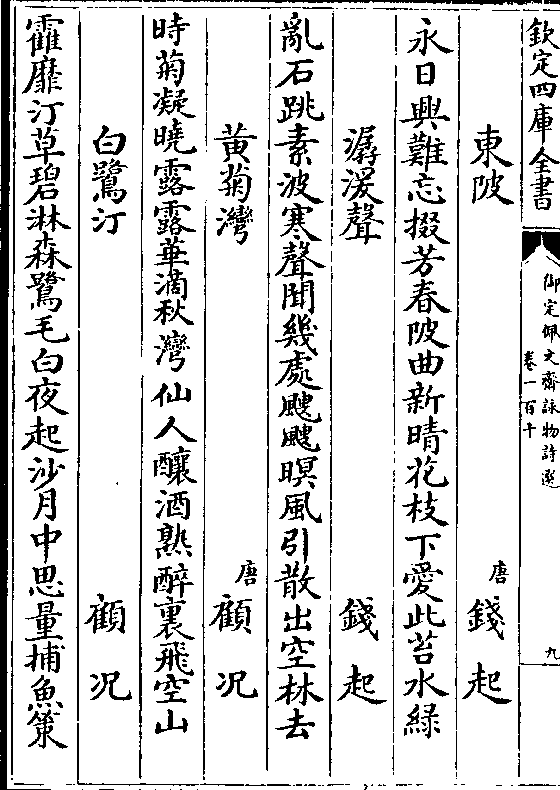 欽定四庫全書
御定佩文齋詠物詩選
卷一百十
九
東陂
唐 錢起
永日興難忘掇芳春陂曲新晴花枝下愛此苔水綠
潺湲聲
錢起
亂石跳素波寒聲聞幾處颼颼暝風引散出空林去
黃菊灣
唐 顧况
時菊凝曉露露華滴秋灣仙人釀酒熟醉裏飛空山
白鷺汀
顧况
靃靡汀草碧淋森鷺毛白夜起沙月中思量捕魚策